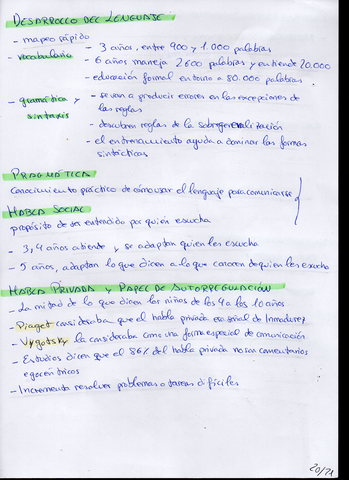 DESARROLLO DEL LENGUAJE
- mapeo rápido
- vocabulario - 3 años, entre 900 y 1.000 palabras
- 6 años maneja 2600 palabras y entiende 20,000
- educación formal entorno a 80.000 palabras
- gramática y sintaxis - se van a producir errores en las excepciones de
las reglas
- descubren reglas de la sobregeneralización
- el entrenamiento ayuda a dominar las formas
sintácticas
PRAGMÁTICA
Conocimiento práctico de cómo usar el lenguaje para comunicarse
HABLA SOCIAL
propósito de ser entendido por quién escucha
- 3, 4 años atiende y se adaptan quien les escucha
- 5 años, adaptan lo que dicen a lo que conocen de quien les escucha
HABLA PRIVADA Y PAPEL DE AUTORREGULACIÓN
- La mitad de lo que dicen los niños de los 4 a los 10 años
- Piaget consideraba que el habla privada era señal de Inmadurez
- Vygotsky la consideraba como una forma especial de comunicación
- Estudios dicen que el 86% del habla privada no son comentarios
egocéntricos
- Incrementa resolver problemas o tareas difíciles